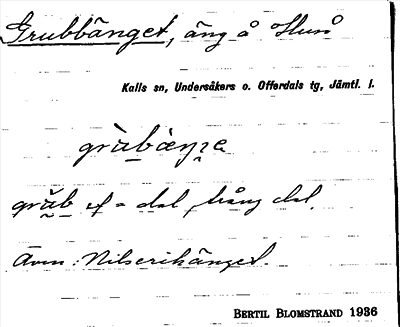 Grubbänget, äng å Huså
Kalls sn, Undersåkers o. Offerdals tg, Jämtl. l.
gràbæŋ̣e
grŭb f = dal, trång dal.
Även: Nilserikänget.
BERTIL BLOMSTRAND 1936